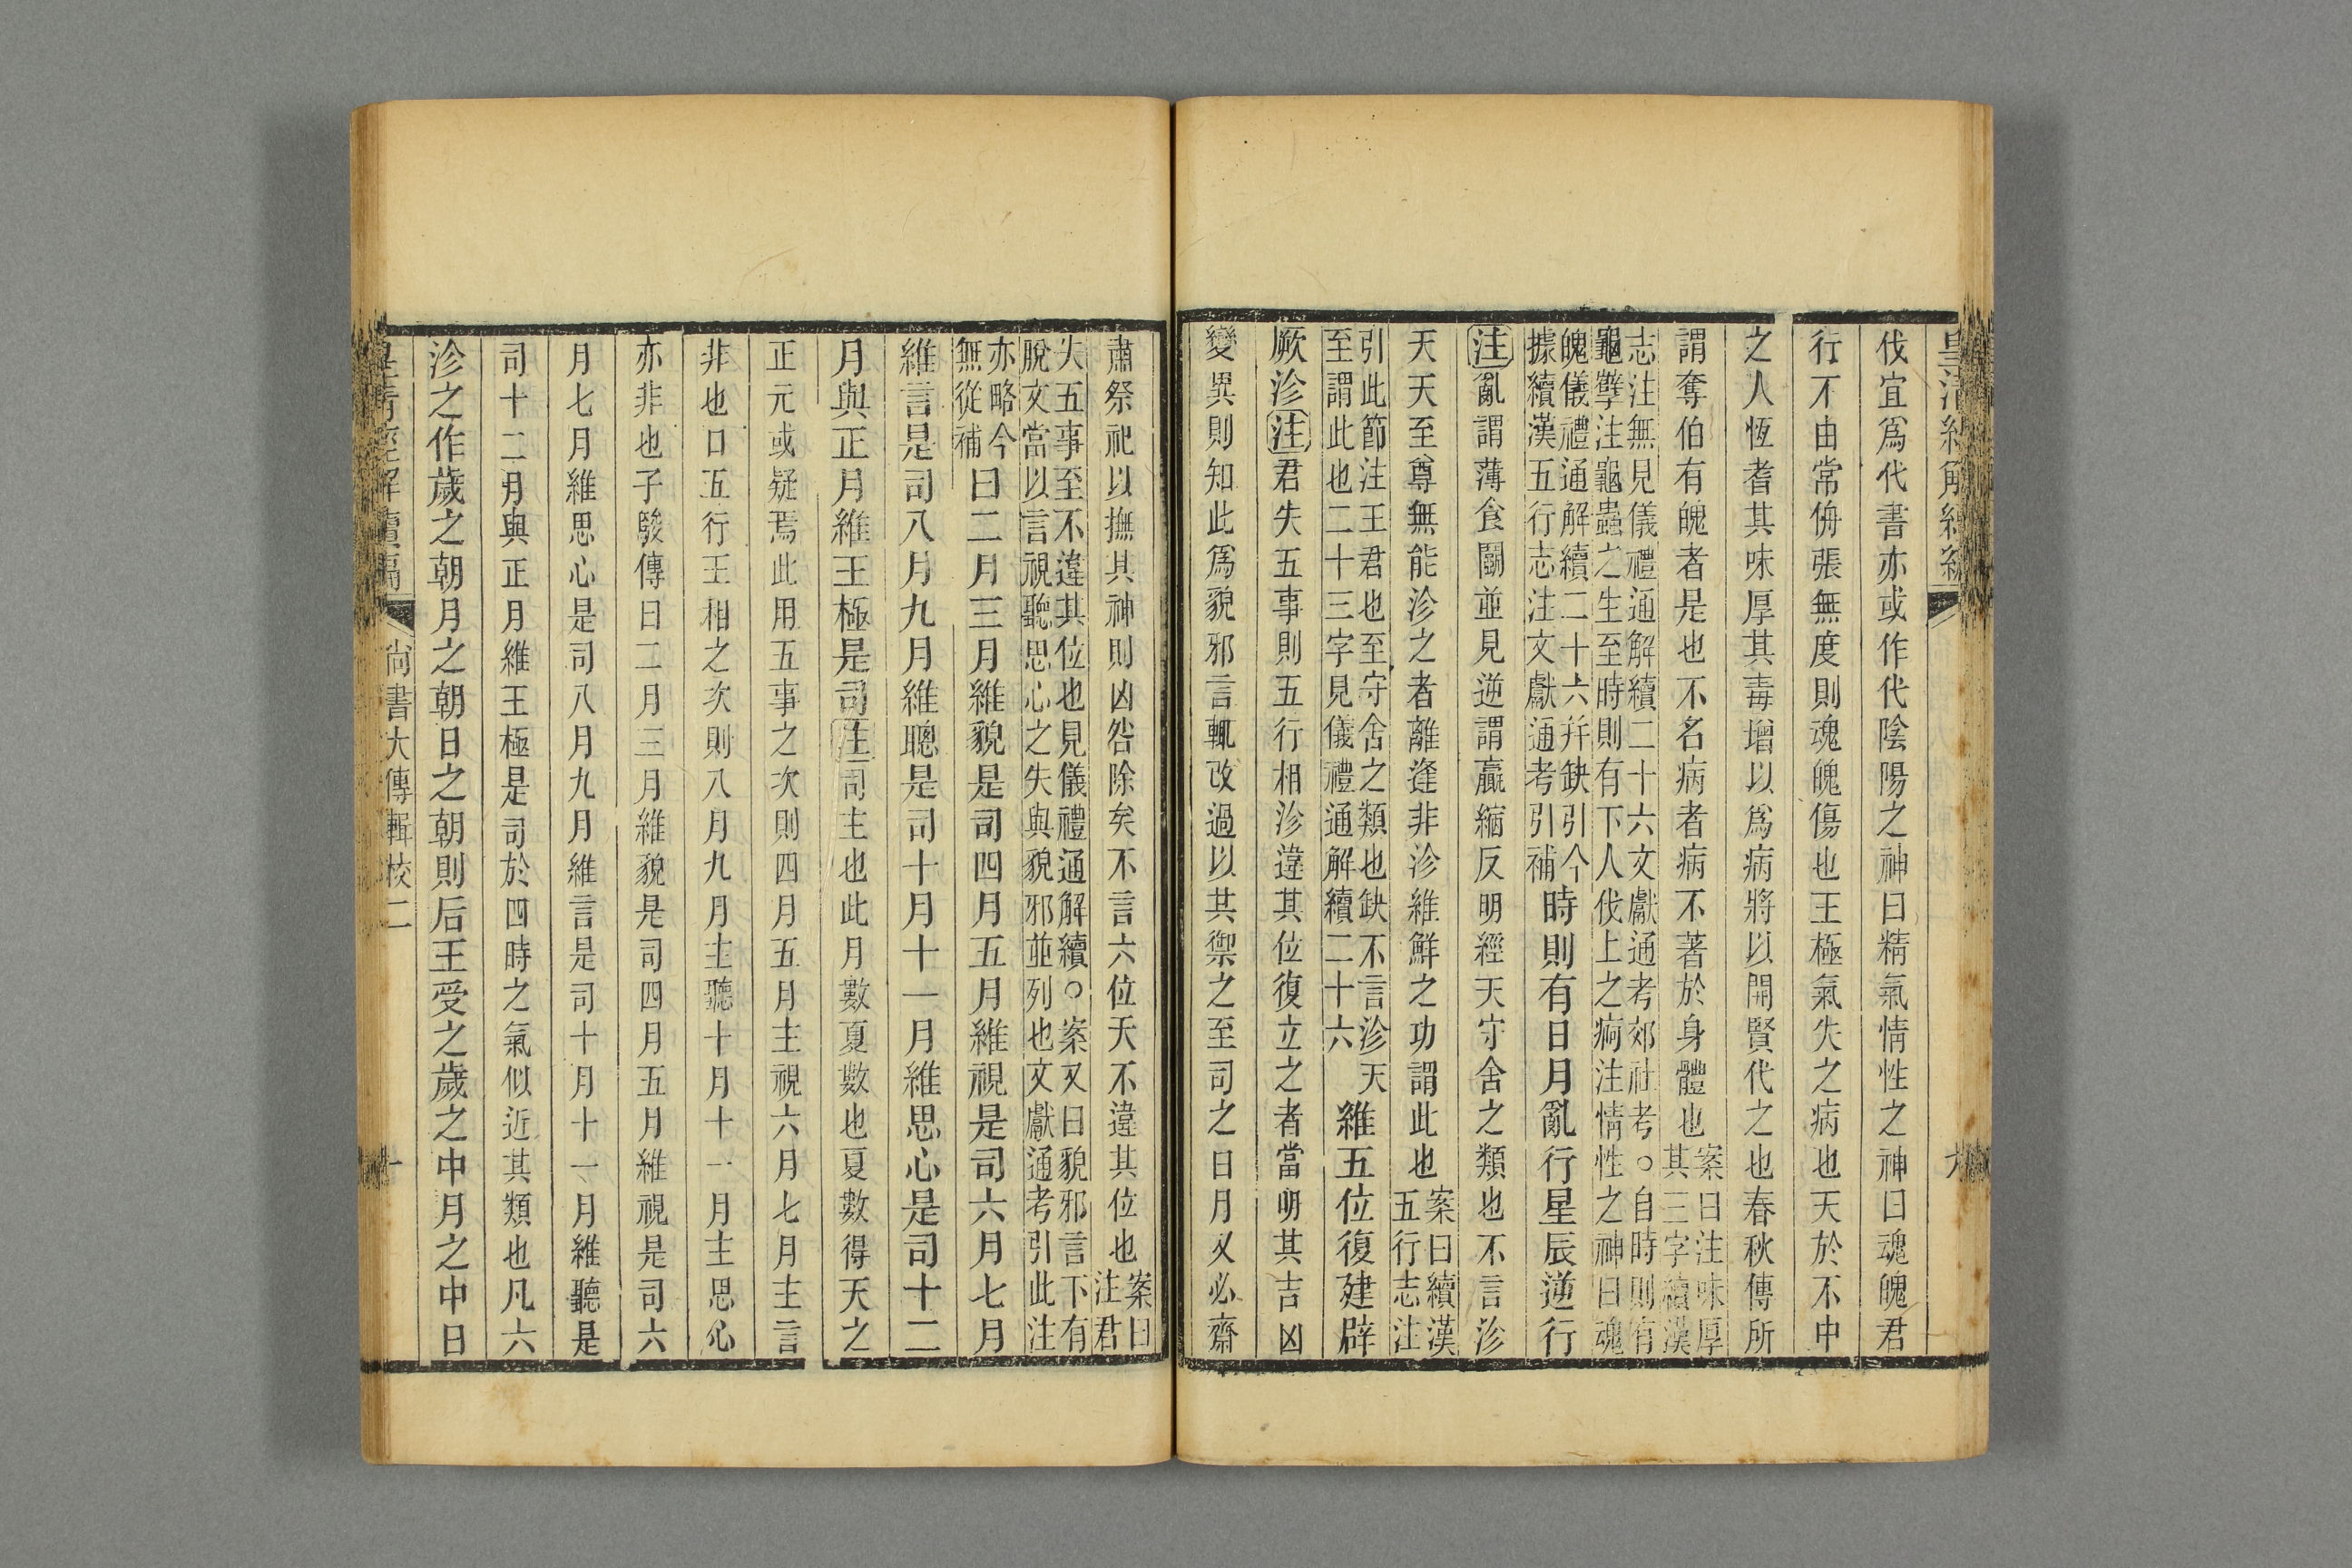 皇清經解續編
伐宜爲代書亦或作代陰陽之神曰精氣情性之神曰魂魄君
行不由常侜張無度則魂魄傷也王極氣失之病也天於不中
之人恆耆其味厚其毒增以爲病將以開賢代之也春秋傳所
謂奪伯有魄者是也不名病者病不著於身體也案曰注味厚
其三字續漢
志注無見儀禮通解續二十六文獻通考郊社考○自時則有
龜孽注龜蟲之生至時則有下人伐上之痾注情性之神曰魂
魄儀禮通解續二十六幷缺引今
據續漢五行志注文獻通考引補時則有日月亂行星辰逆行
注亂謂薄食鬬並見逆謂贏縮反明經天守舍之類也不言沴
天天至尊無能沴之者離逢非沴維鮮之功謂此也案曰續漢
五行志注
引此節注王君也至守舍之類也缺不言沴天
至謂此也二十三字見儀禮通解續二十六維五位復建辟
厥沴注君失五事則五行相沴違其位復立之者當明其吉凶
變異則知此爲貌邪言輒改過以其禦之至司之日月又必齋
肅祭祀以撫其神則凶咎除矣不言六位天不違其位也案曰
注君
失五事至不違其位也見儀禮通解續○案又曰貌邪言下有
脫文當以言視聽思心之失與貌邪並列也文獻通考引此注
亦略今
無從補曰二月三月維貌是司四月五月維視是司六月七月
維言是司八月九月維聰是司十月十一月維思心是司十二
月與正月維王極是司注司主也此月數夏數也夏數得天之
正元或疑焉此用五事之次則四月五月主視六月七月主言
非也口五行王相之次則八月九月主聽十月十一月主思心
亦非也子駿傳曰二月三月維貌是司四月五月維視是司六
月七月維思心是司八月九月維言是司十月十一月維聽是
司十二月與正月維王極是司於四時之氣似近其類也凡六
沴之作歲之朝月之朝日之朝則后王受之歲之中月之中日
皇清經解續編 尚書大傳輯校二 十